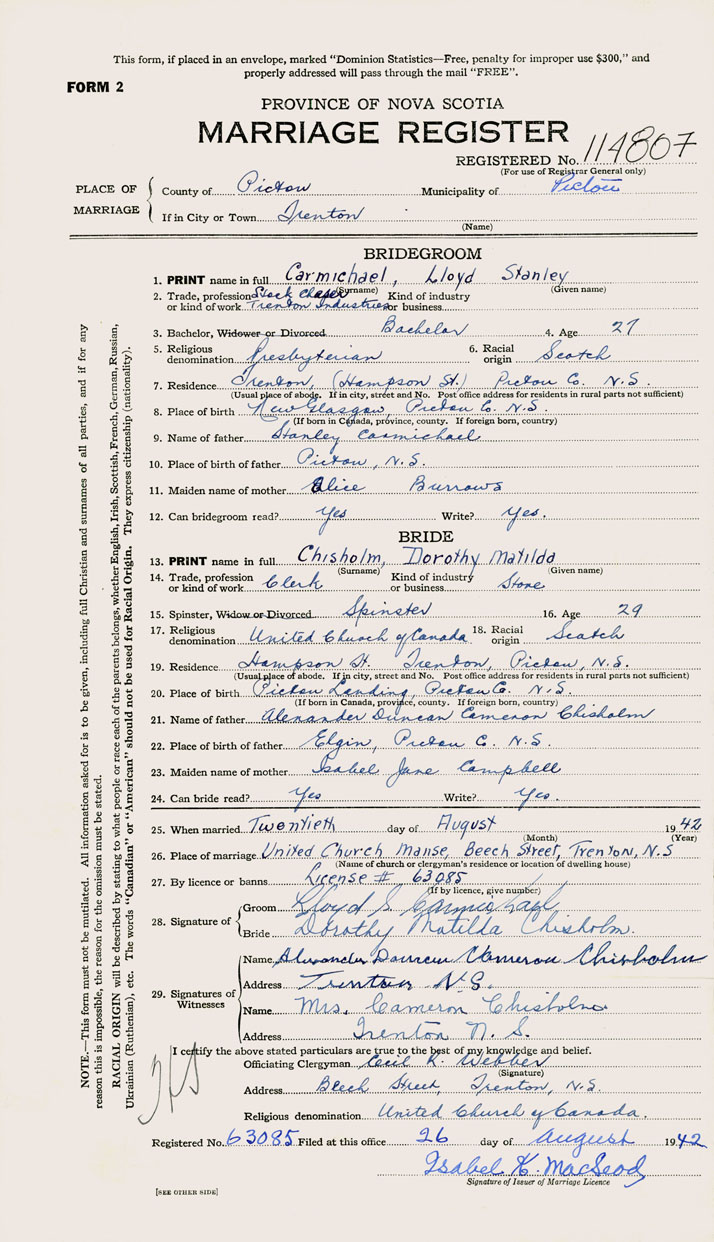 This form, if placed in an envelope, marked "Dominion Statistics—Free, penalty for improper use $300," and
properly addressed will pass through the mail "FREE".
FORM 2
PROVINCE OF NOVA SCOTIA
MARRIAGE REGISTER
REGISTERED No. 114807
(For use of Registrar General only)
PLACE OF MARRIAGE
County of Pictou Municipality of Pictou
If in City or Town Trenton
(Name)
BRIDEGROOM
1. PRINT name in full Carmichael, Lloyd Stanley
(Surname) (Given name)
2. Trade, profession or kind of work Stock chaser Trenton Industries Kind of industry or business
3. Bachelor, Widower or Divorced Bachelor 4. Age 27
5. Religious denomination Presbyterian 6. Racial origin Scotch
7. Residence Trenton, (Hampson St.) Pictou C. N.S.
(Usual place of abode. If in city, street and No. Post office address for residents in rural parts not sufficient)
8. Place of birth New Glasgow, Pictou C. N.S.
(If born in Canada, province, county. If foreign born, country)
9. Name of father Stanley Carmichael
10. Place of birth of father Pictou, N.S.
11. Maiden name of mother Alice Burrows
12. Can bridegroom read? Yes Write? Yes.
BRIDE
13. PRINT name in full Chisholm, Dorothy Matilda
(Surname) (Given name)
14. Trade, profession or kind of work Clerk Kind of industry or business Store
15. Spinster, Widow or Divorced Spinster 16. Age 29
17. Religious denomination United Church of Canada 18. Racial origin Scotch
19. Residence Hampson St. Trenton, Pictou, N.S.
(Usual place of abode. If in city, street and No. Post office address for residents in rural parts not sufficient)
20. Place of birth Pictou Landing, Pictou C. N.S.
(If born in Canada, province, county. If foreign born, country)
21. Name of father Alexander Duncan Cameron Chisholm
22. Place of birth of father Elgin, Pictou C. N.S.
23. Maiden name of mother Isabel Jane Campbell
24. Can bride read? Yes Write? Yes.
25. When married Twentieth day of August 1942
(Month) (Year)
26. Place of marriage United Church Manse, Beech Street, Trenton, N.S
(Name of church or clergyman's residence or location of dwelling house)
27. By licence or banns License # 63085
(If by licence, give number)
28. Signature of
Groom Lloyd S. Carmichael
Bride Dorothy Matilda Chisholm.
29. Signatures of Witnesses
Name Alexander Duncan Cameron Chisholm
Address Trenton N.S.
Name Mrs. Cameron Chisholm
Address Trenton N. S.
I certify the above stated particulars are true to the best of my knowledge and belief.
Officiating Clergyman Cecil R. Webber
(Signature)
Address Beech Street, Trenton, N.S.
Religious denomination United Church of Canada.
Registered No. 63085 Filed at this office 26 day of August 1942
Isabel K. MacLeod
Signature of Issuer of Marriage Licence
[SEE OTHER SIDE]
NOTE.—This form must not be mutilated. All information asked for is to be given, including full Christian and surnames of all parties, and if for any
reason this is impossible, the reason for the omission must be stated.
RACIAL ORIGIN will be described by stating to what people or race each of the parents belongs, whether English, Irish, Scottish, French, German, Russian,
Ukrainian (Ruthenian), etc. The words "Canadian" or "American" should not be used for Racial Origin. They express citizenship (nationality).